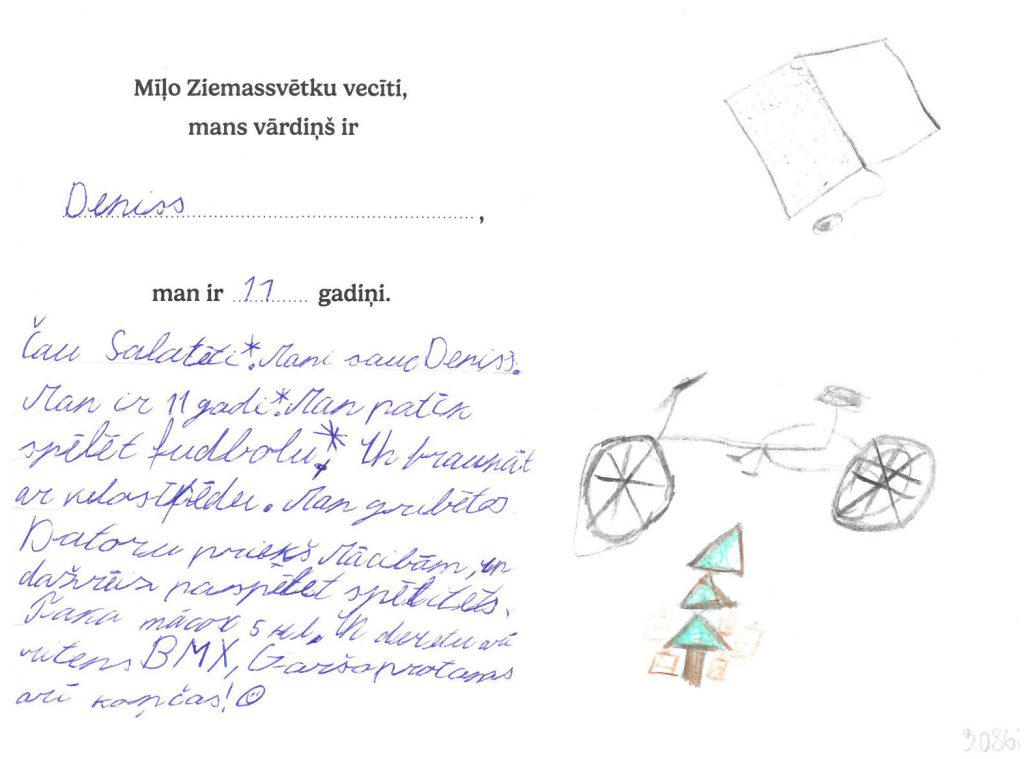 Mīļo Ziemassvētku vecīti,
mans vārdiņš ir
Deniss,
man ir 11 gadiņi.
Čau Salatēti! Mani sauc Deniss.
Man ir 11 gadi! Man patīk
spēlēt fudbolu! Un braukāt
ar velosipēdu. Man gribētos
Datoru priekš Mācībām, un
dažrēiz paspēlēt
mācos 5 kl. Un derētu arī
ritens BMX, protams
arī koņčas!
3086i